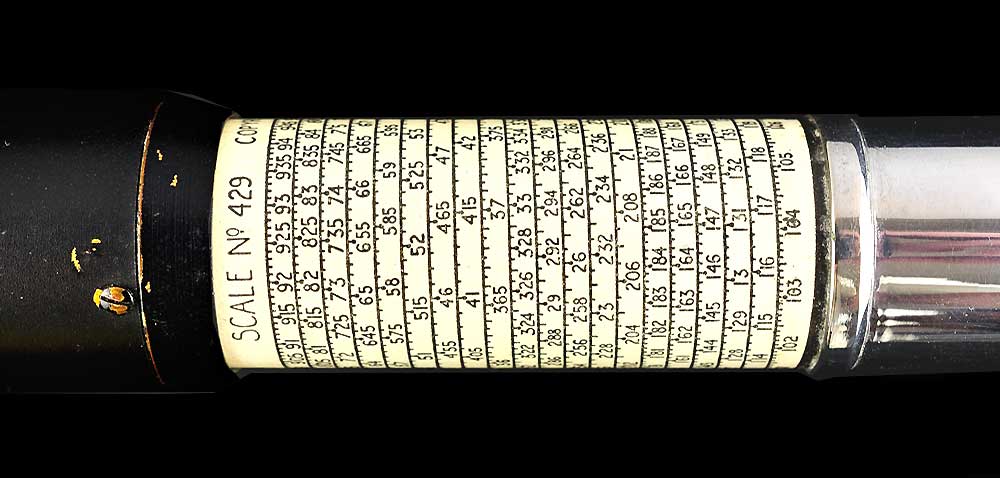 SCALE Nº 429
905 91 915 92 925 93 935 94 945
805 81 815 82 825 83 835 84
72 725 73 735 74 745 75
64 645 65 655 66 665 67
57 575 58 585 59 595
51 515 52 525 53
455 46 465 47
405 41 415 42
36 365 37 375
322 324 326 328 33 332 334
286 288 29 292 294 296 298
256 258 26 262 264 266
228 23 232 234 236
204 206 208 21
181 182 183 184 185 186 187 188
161 162 163 164 165 166 167
144 145 146 147 148 149
128 129 13 131 132 133
114 115 116 117 118
102 103 104 105 106